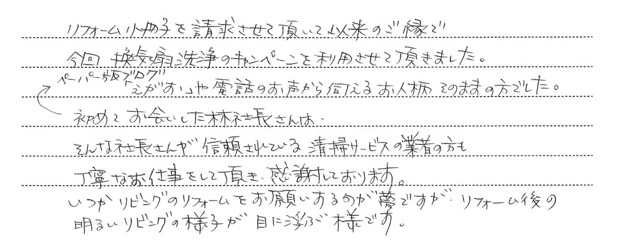 リフォーム小冊子を請求させて頂いて以来のご縁で
今回 換気扇洗浄のキャンペーンを利用させて頂きました。
ペーパー版ブログ
えがおいや電話のお声から伺えるお人柄そのままの方でした。
初めてお会いした林社長さんは、
そんな社長さんが信頼されている清掃サービスの業者の方も
丁寧なお仕事をして頂き、感謝しております。
いつかリビングのリフォームをお願いするのが夢ですが、リフォーム後の
明るいリビングの様子が目に浮ぶ様です。